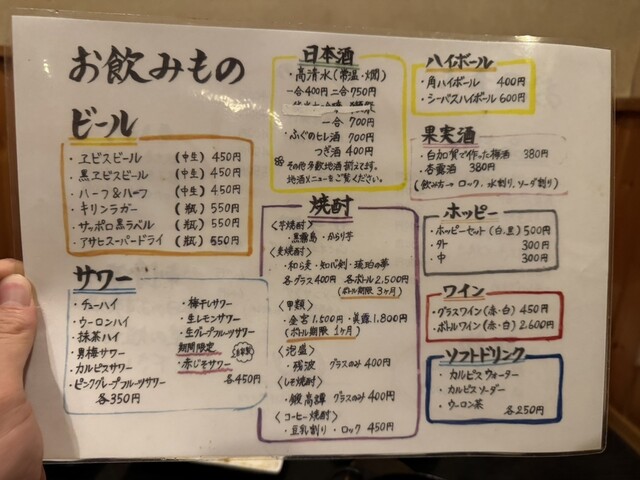 お飲みもの
ビール
・ヱビスビール (中生) 450円
・黒ヱビスビール (中生) 450円
・ハーフ&ハーフ (中生) 450円
・キリンラガー (瓶) 550円
・サッポロ黒ラベル (瓶) 550円
・アサヒスーパードライ (瓶) 550円
サワー
・チューハイ
・ウーロンハイ
・抹茶ハイ
・男梅サワー
・カルピスサワー
・ピンクグレープフルーツサワー
各350円
・梅干しサワー
・生レモンサワー
・生グレープフルーツサワー
期間限定
・赤じそサワー
各450円
日本酒
・高清水(常温・燗)
一合400円 二合750円
一合 700円
・ふぐのヒレ酒 700円
つぎ酒 400円
その他多数地酒揃えてます。
地酒メニューをご覧ください。
焼酎
〈芋焼酎〉
・黒霧島・からり芋
〈麦焼酎〉
・和ら麦・知心剣・琥珀の夢
各グラス400円 各ボトル2,500円
(ボトル期限 3ヶ月)
〈甲類〉
・金宮1,500円・眞露1,800円
(ボトル期限 1ヶ月)
〈泡盛〉
・残波 グラスのみ 400円
〈しそ焼酎〉
・鍛高譚 グラスのみ 400円
〈コーヒー焼酎〉
・豆乳割り・ロック 450円
ハイボール
・角ハイボール 400円
・シーバスハイボール 600円
果実酒
・白加賀で作った梅酒 380円
・杏露酒 380円
(飲み方→ロック、水割り、ソーダ割り)
ホッピー
・ホッピーセット(白、黒) 500円
・外 300円
・中 300円
ワイン
・グラスワイン(赤・白) 450円
・ボトルワイン(赤・白) 2,600円
ソフトドリンク
・カルピスウォーター
・カルピスソーダー
・ウーロン茶 各250円